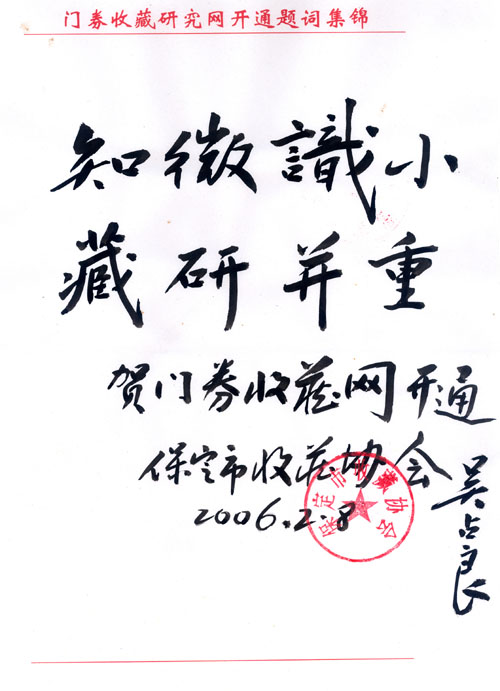 门券收藏研究网开通题词集锦
知微識小
藏研并重
贺门券收藏网开通
保定市收藏协会
吴占良
2006.2.8
保定市收藏协会